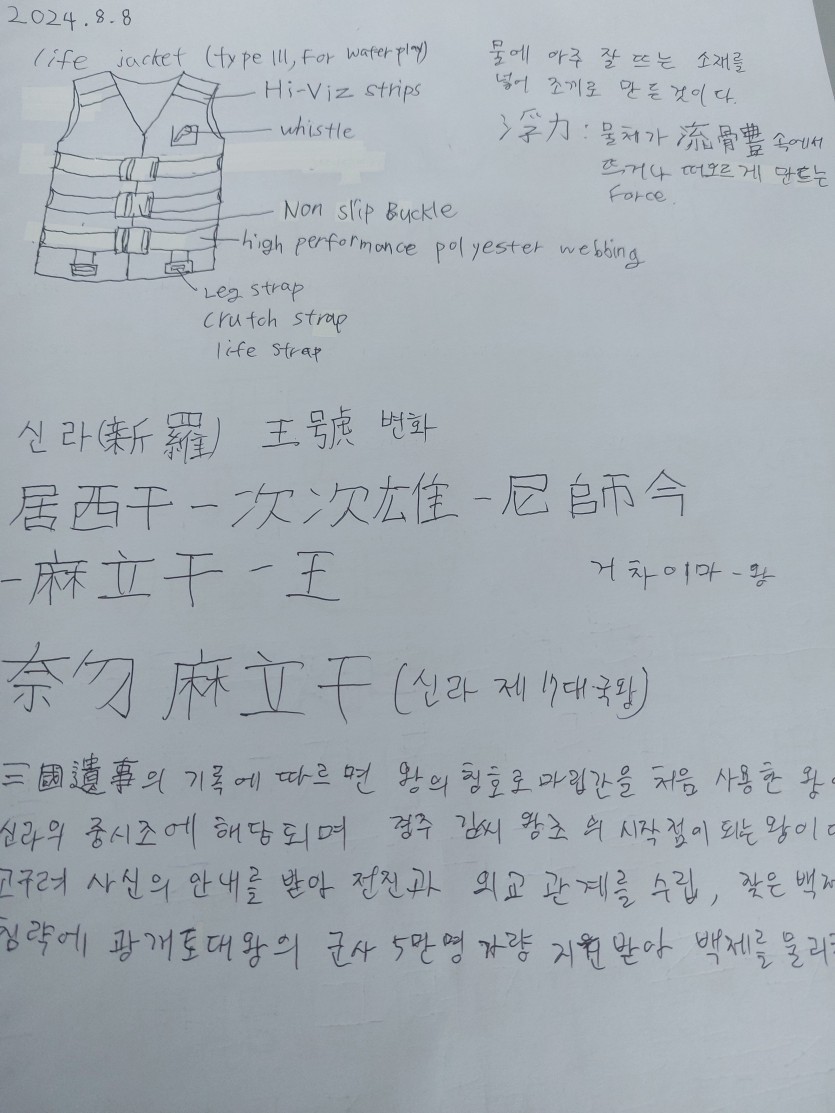 2024.8.8
life jacket (type III, for water play)
Hi-Viz strips
whistle
Non slip Buckle
high performance polyester webbing
Leg strap
crutch strap
life strap
물에 아주 잘 뜨는 소재를
넣어 조끼로 만든 것이다.
浮力 : 물체가 流體 속에서
뜨거나 떠오르게 만드는
Force.
신라(新羅) 王號 변화
居西干 - 次次雄 - 尼師今
- 麻立干 - 王
거차이마 - 왕
奈勿 麻立干 (신라 제17대 국왕)
三國遺事의 기록에 따르면 왕의 칭호로 마립간을 처음 사용한 왕
신라의 중시조에 해당되며 경주 김씨 왕조의 시작점이 되는 왕이
고구려 사신의 안내를 받아 전진과 외교 관계를 수립, 잦은 백제
침략에 광개토대왕의 군사 5만명 가량 지원받아 백제를